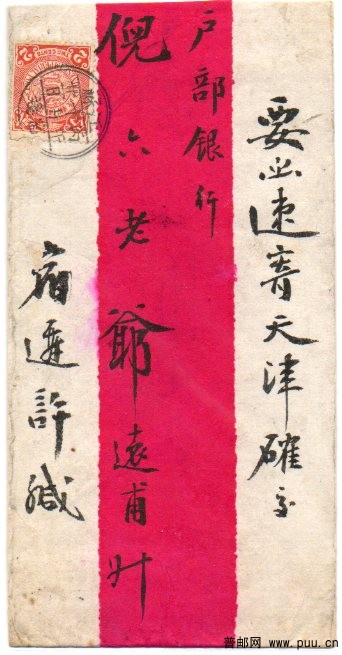 要速寄天津確交
戶部銀行
倪六老爺遠甫升
宿遷許緘
2
2
普邮网 www.puu.cn